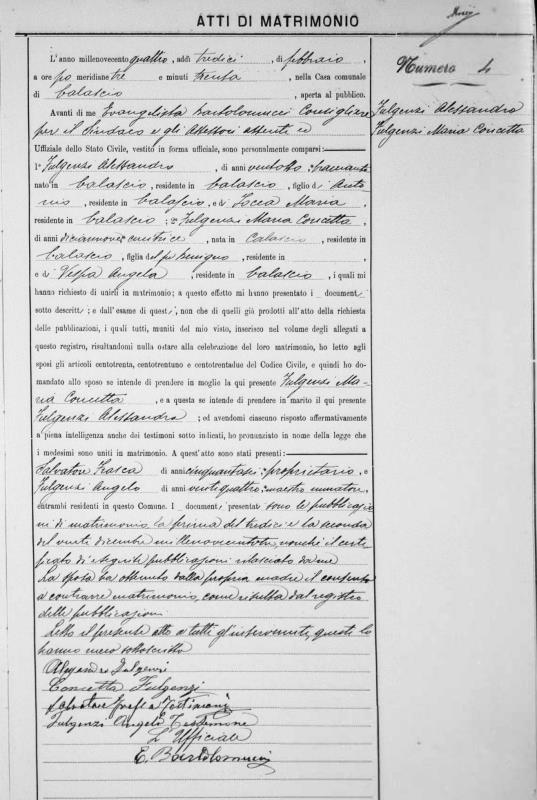 ATTI DI MATRIMONIO
Numero 4
Fulgenzi Alessandro
Fulgenzi Maria Concetta
L'anno millenovecento quattro, addì tredici, di febbraio,
a ore po meridiane tre e minuti trenta, nella Casa comunale
di Calascio, aperta al pubblico.
Avanti di me Evangelista Bartolomucci Consigliere
per il Sindaco e gli Assessori assenti
Uffiziale dello Stato Civile, vestito in forma ufficiale, sono personalmente comparsi:
1° Fulgenzi Alessandro, di anni ventotto,
nato in Calascio, residente in Calascio, figlio di Anto
nio, residente in Calascio, e di Maria
residente in Calascio; 2° Fulgenzi Maria Concetta,
di anni diciannove cucitrice, nata in Calascio, residente in
Calascio, figlia del fu Benigno, residente in
e di Vespa Angela, residente in Calascio, i quali mi
hanno richiesto di unirli in matrimonio; a questo effetto mi hanno presentato i document
sotto descritti; e dall'esame di questi, non che di quelli già prodotti all'atto della richiesta
delle pubblicazioni, i quali tutti, muniti del mio visto, inserisco nel volume degli allegati a
questo registro, risultandomi nulla ostare alla celebrazione del loro matrimonio, ho letto agli
sposi gli articoli centotrenta, centotrentuno e centotrentadue del Codice Civile, e quindi ho do-
mandato allo sposo se intende di prendere in moglie la qui presente Fulgenzi Ma-
ria Concetta, e a questa se intende di prendere in marito il qui presente
Fulgenzi Alessandro; ed avendomi ciascuno risposto affermativamente
a piena intelligenza anche dei testimoni sotto indicati, ho pronunciato in nome della legge che
i medesimi sono uniti in matrimonio. A quest'atto sono stati presenti:
Salvatore Frasca di anni cinquantasei, proprietario, e
Fulgenzi Angelo di anni ventiquattro, maestro muratore,
entrambi residenti in questo Comune. I document presentat sono le pubblicazio
ni di matrimonio la prima del tredici e la seconda
del venti dicembre millenovecentotre, nonché il certi
ficato di eseguite pubblicazioni rilasciato da me
La sposa ha ottenuto dalla propria madre il consenso
a contrarre matrimonio, come risulta dal registro
delle pubblicazioni.
Letto il presente atto a tutti gl'intervenuti, questi lo
hanno meco sottoscritto
Alessandro Fulgenzi
Concetta Fulgenzi
Salvatore Testimone
Fulgenzi Angelo Testimone
L'Uffiziale
E. Bartolomucci